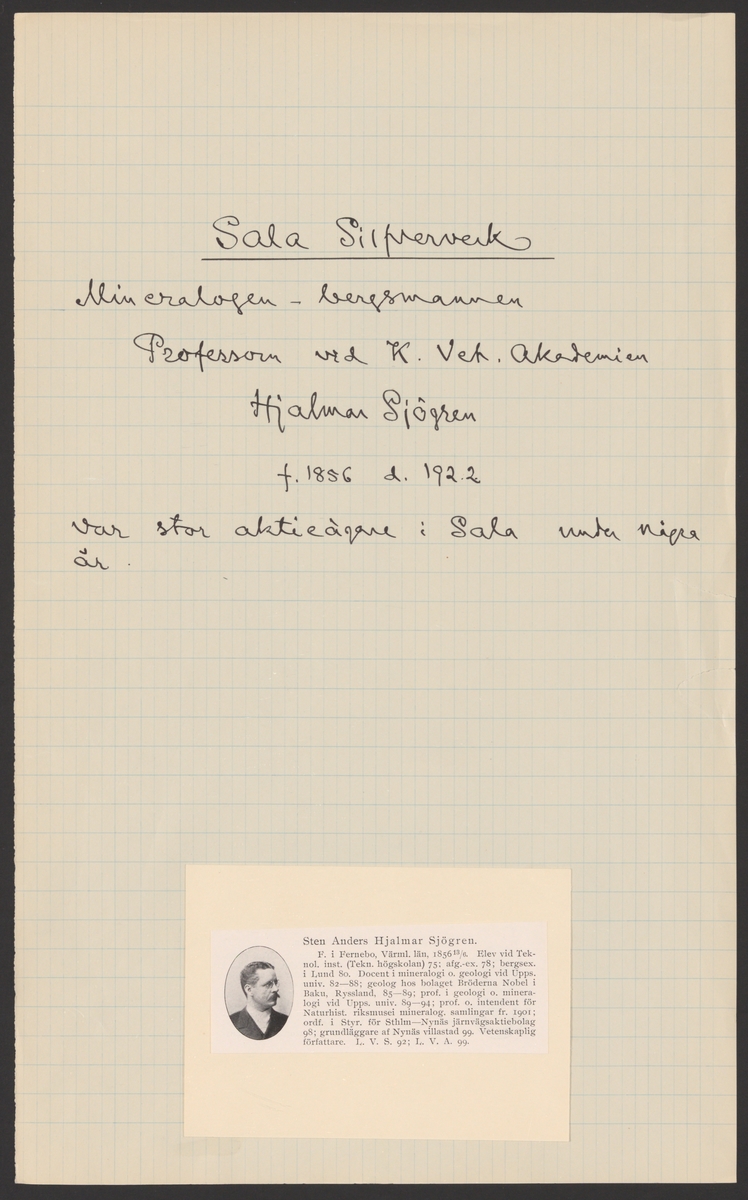 Sala Silfververk
Mineralogen - bergsmannen
Professorn vid K. Vet. Akademien
Hjalmar Sjögren
f. 1856 d. 1922
var stor aktieägare i Sala under några
år.
Sten Anders Hjalmar Sjögren.
F. i Fernebo, Värml. län, 1856 13/6. Elev vid Tek-
nol. inst. (Tekn. högskolan) 75; afg.-ex. 78; bergsex.
i Lund 80. Docent i mineralogi o. geologi vid Upps.
univ. 82—88; geolog hos bolaget Bröderna Nobel i
Baku, Ryssland, 85—89; prof. i geologi o. minera-
logi vid Upps. univ. 89—94; prof. o. intendent för
Naturhist. riksmusei mineralog. samlingar fr. 1901;
ordf. i Styr. för Sthlm—Nynäs järnvägsaktiebolag
98; grundläggare af Nynäs villastad 99. Vetenskaplig
författare. L. V. S. 92; L. V. A. 99.